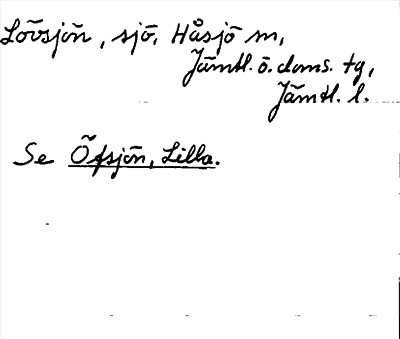 Lövsjön, sjö, Håsjö sn,
Jämtl. ö. doms. tg,
Jämtl. l.
Se Öfsjön, Lilla.